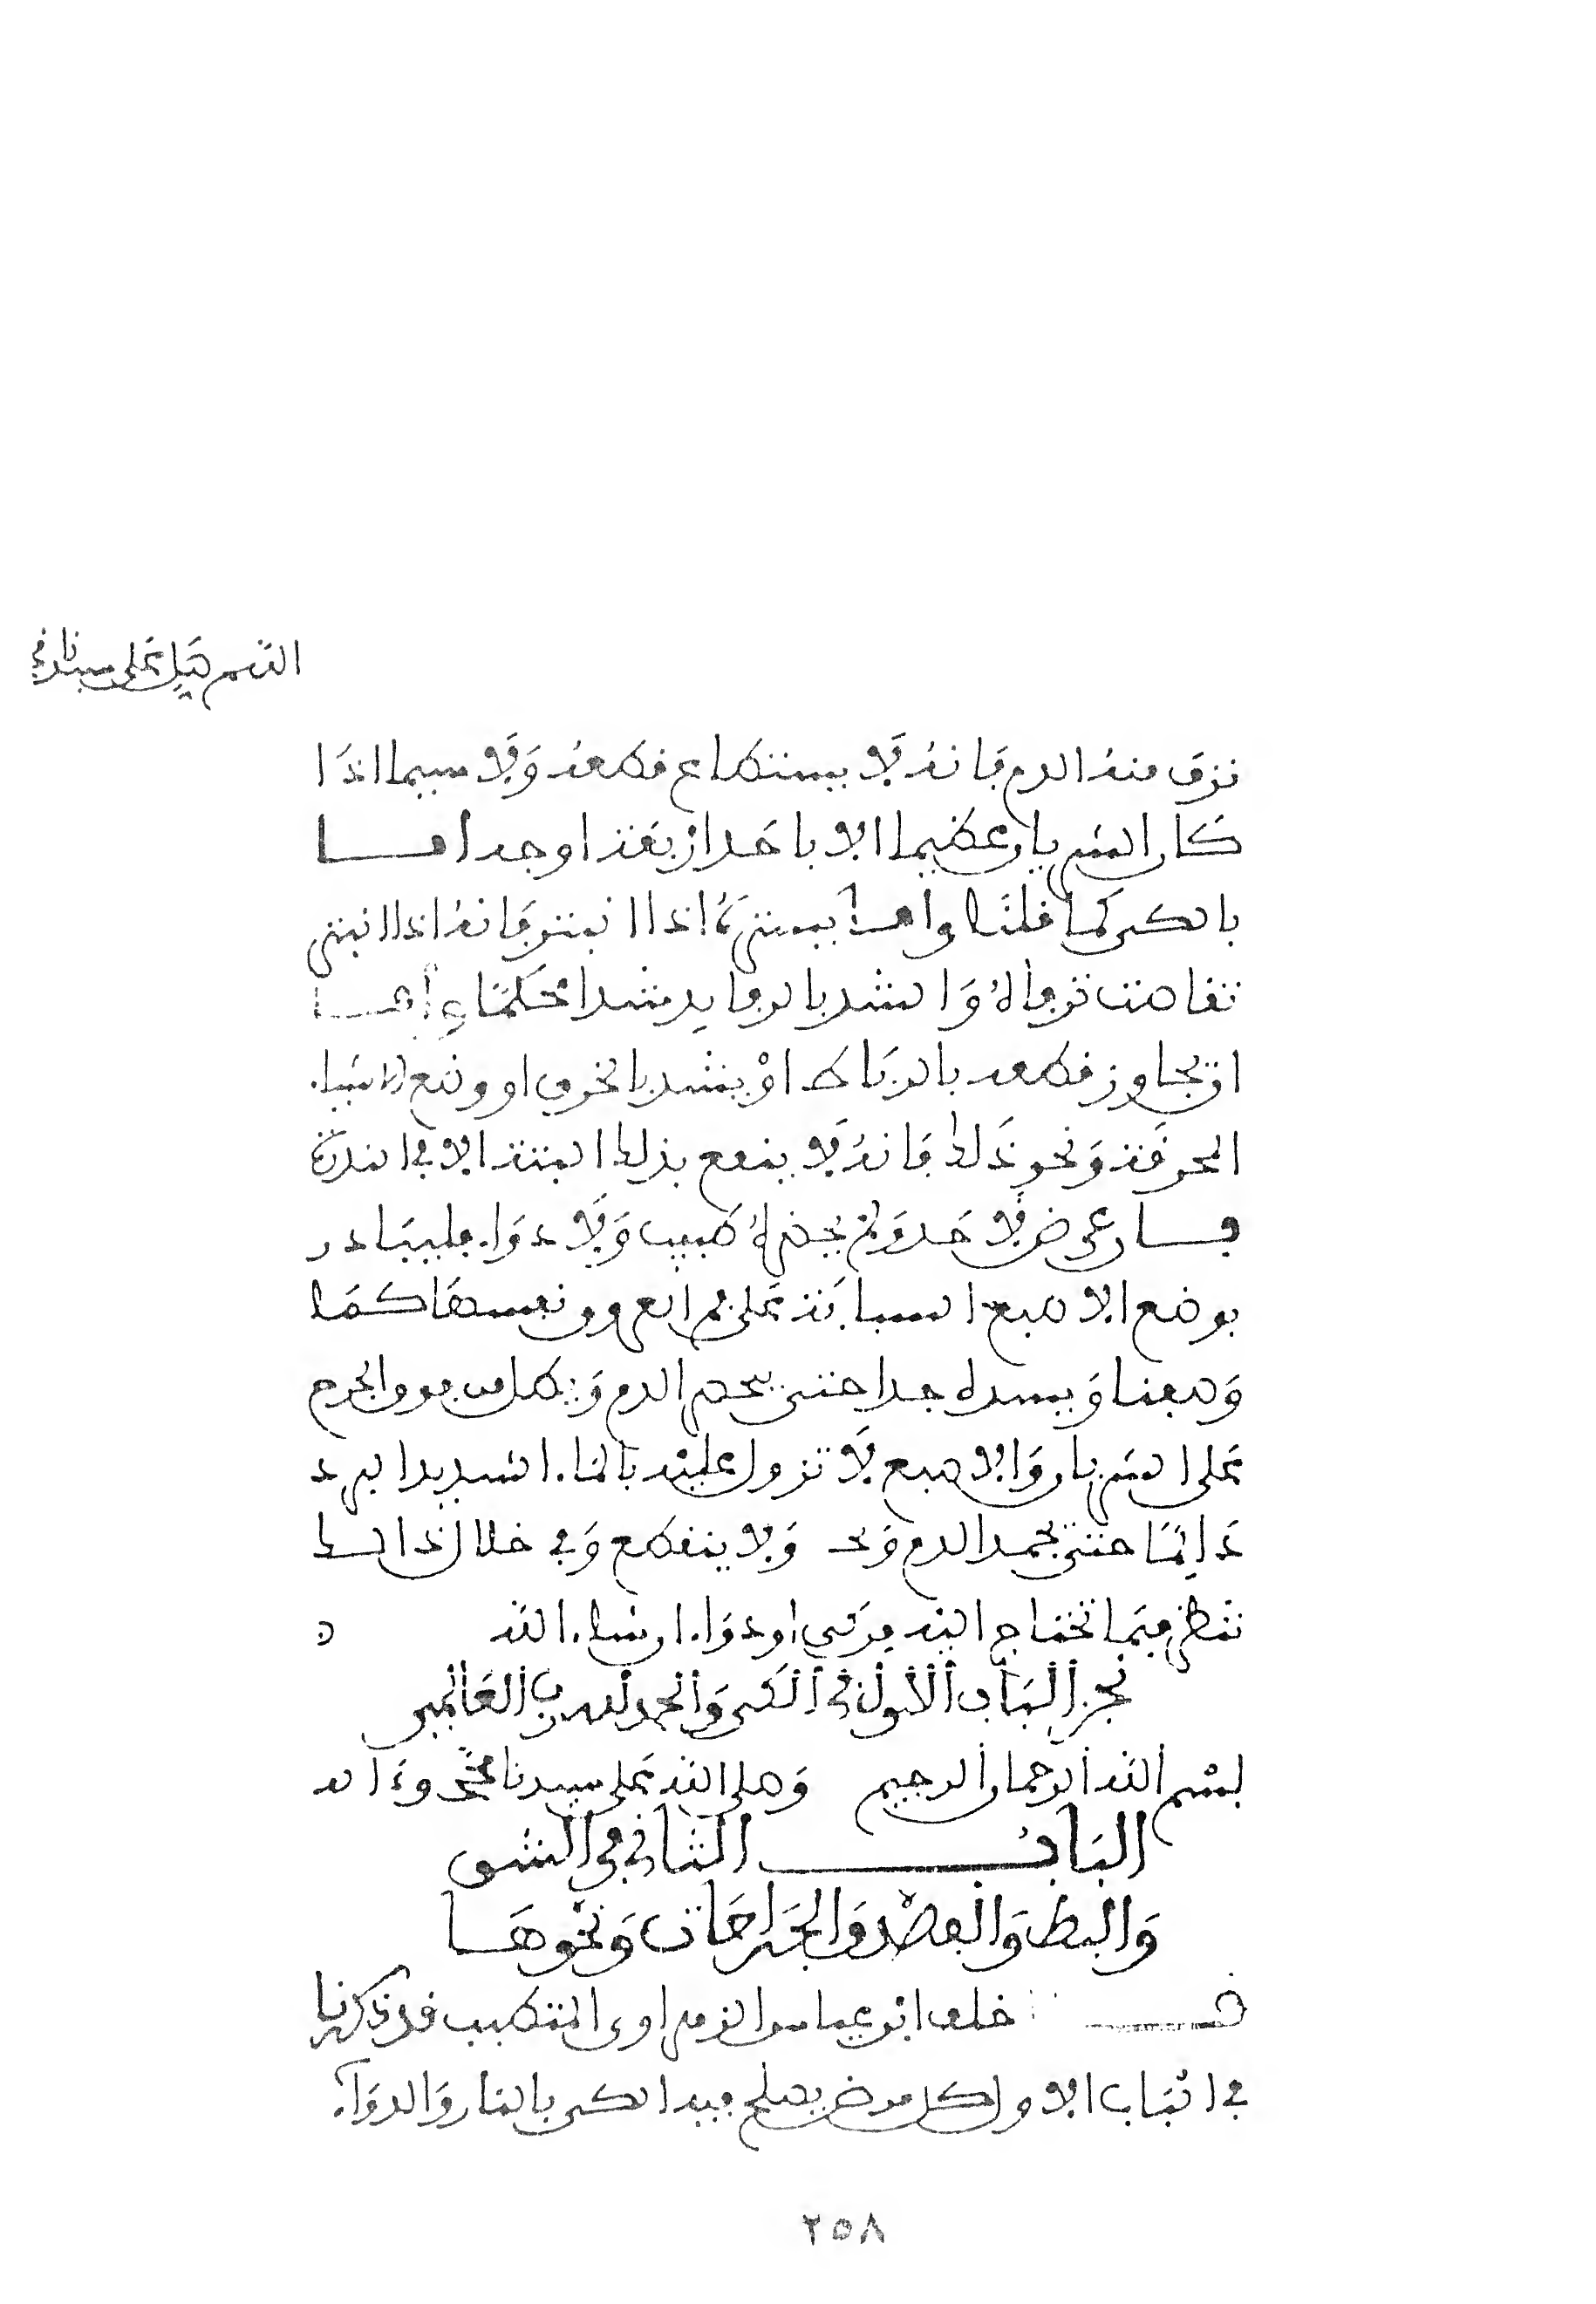 اللهم صل على سيدنا
نزف منه الدم فانه لا يستطاع قطعه ولا سيما اذا
كان الشريان عظيما الا باحد اربعة اوجه اما
بالكي كما قلنا واما ببتره اذا لم ينبتر فانه اذا انبتر
تقلصت نزفاته والشد بالرفايد شدا محكما اما
ان يحاول قطعه بالرباط او يشد بالخرق او وضع الاشياء
المحرقة ونحو ذلك فانه لا ينتفع بذلك البتة الا في الندرة
فان عرض لاحد ولم يحضره طبيب ولا دواء فليبادر
بوضع الاصبع السبابة على فم العرق نفسها كما
وصفنا ويشده جدا حتى يحصر الدم وينطل من فوق الجرح
على الشريان والاصبع لا تزول عليه بالماء الشديد البرد
دايما حتى يجمد الدم ولا ينقطع وفي خلال ذالك
تنظر فيما تحتاج اليه من كي او دواء ان شاء الله
نجز الباب الاول في الكي والحمد لله رب العالمين
بسم الله الرحمان الرحيم وصلى الله على سيدنا محمد وءاله
الباب الثاني في الشق
والبط والفصد والجراحات ونحوها
خلف ابن عباس الزهراوي المتطبب قد ذكرنا
في الباب الاول كل مرض يصلح فيه الكي بالنار والدواء
٢٥٨